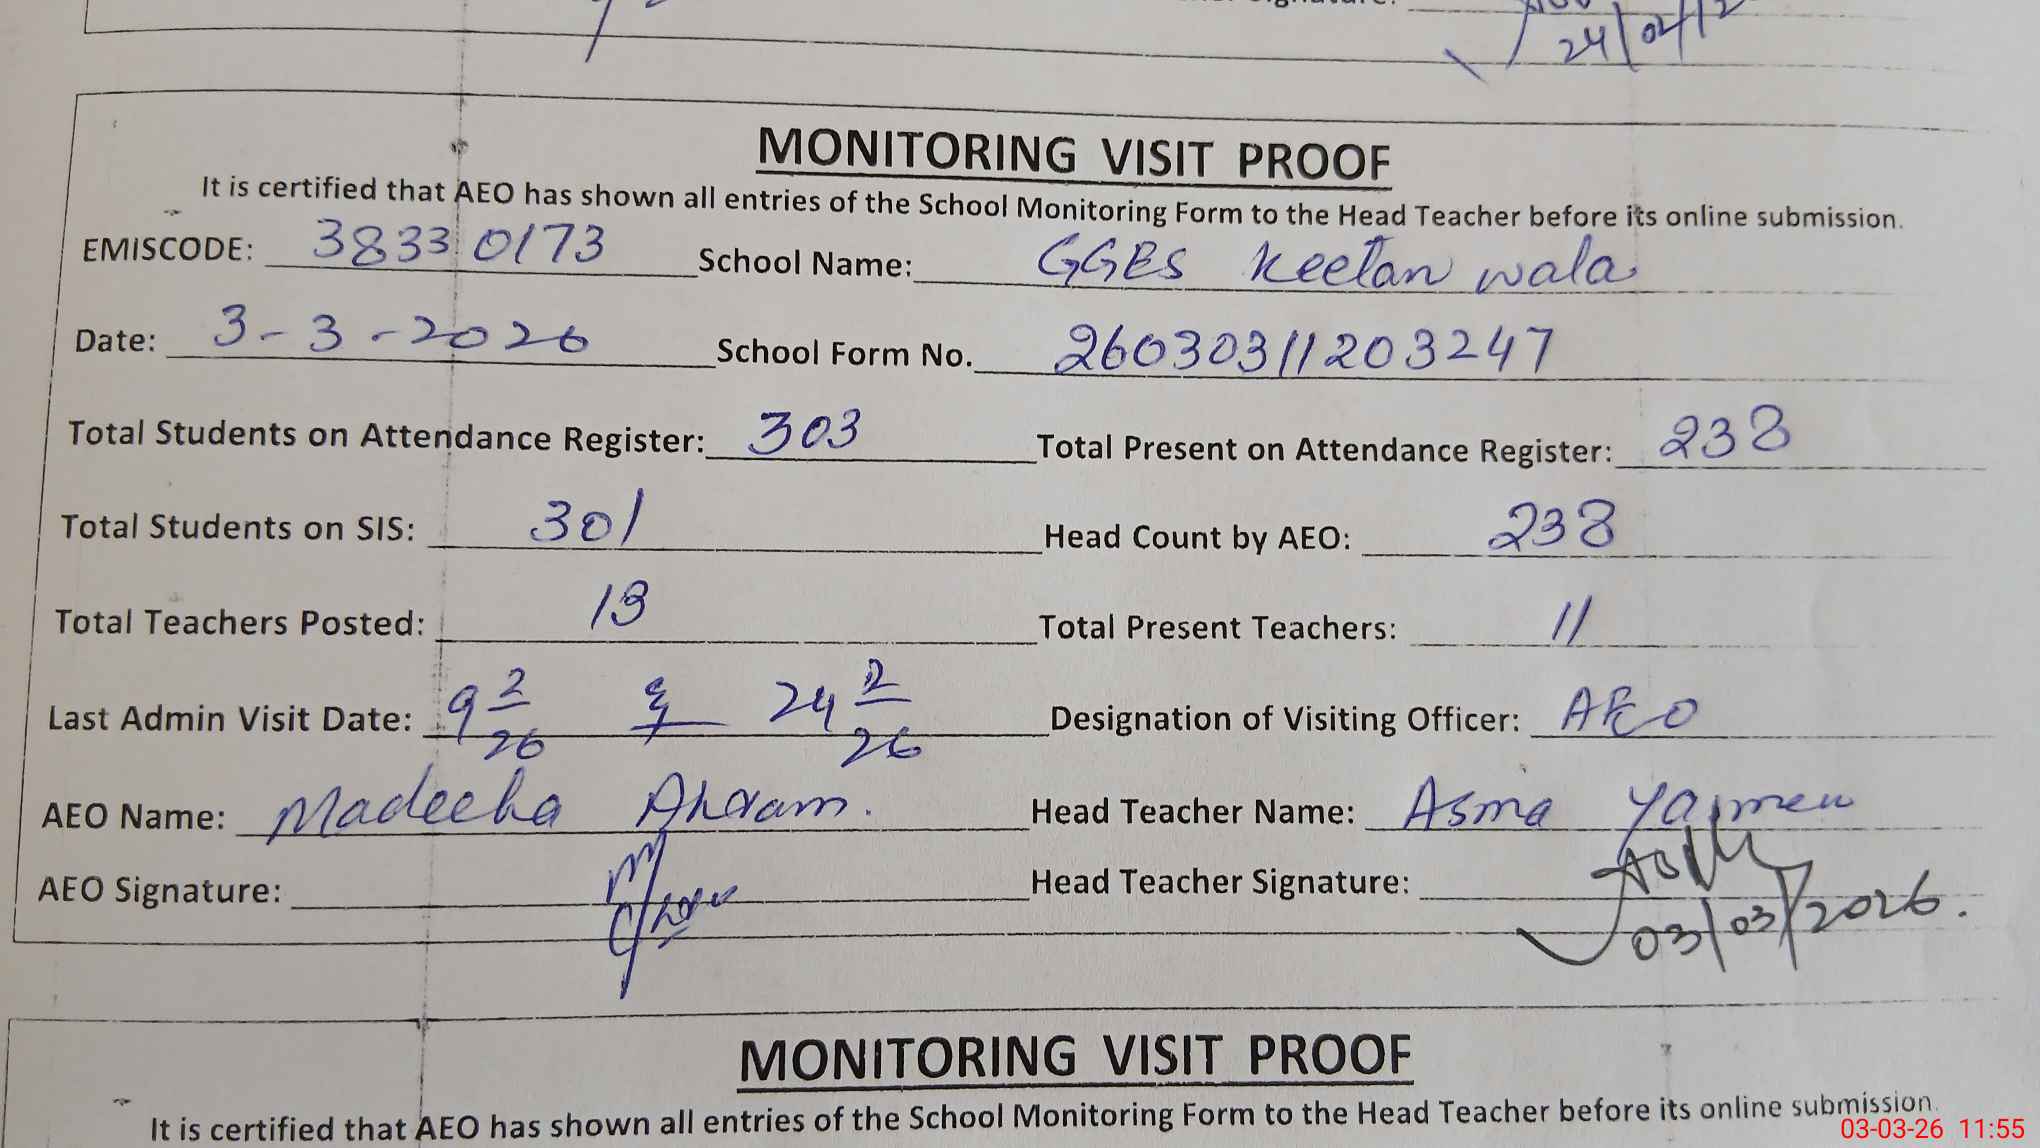 24/02/2
MONITORING VISIT PROOF
It is certified that AEO has shown all entries of the School Monitoring Form to the Head Teacher before its online submission.
EMISCODE: 38330173 School Name: GGES Keetan wala
Date: 3-3-2026 School Form No. 26030311203247
Total Students on Attendance Register: 303 Total Present on Attendance Register: 238
Total Students on SIS: 301 Head Count by AEO: 238
Total Teachers Posted: 13 Total Present Teachers: 11
Last Admin Visit Date: 9 2/26 & 24 2/26 Designation of Visiting Officer: AEO
AEO Name: Madeeha Akram. Head Teacher Name: Asma Yasmeen
AEO Signature: Head Teacher Signature:
03/03/2026.
MONITORING VISIT PROOF
It is certified that AEO has shown all entries of the School Monitoring Form to the Head Teacher before its online submission.
03-03-26 11:55